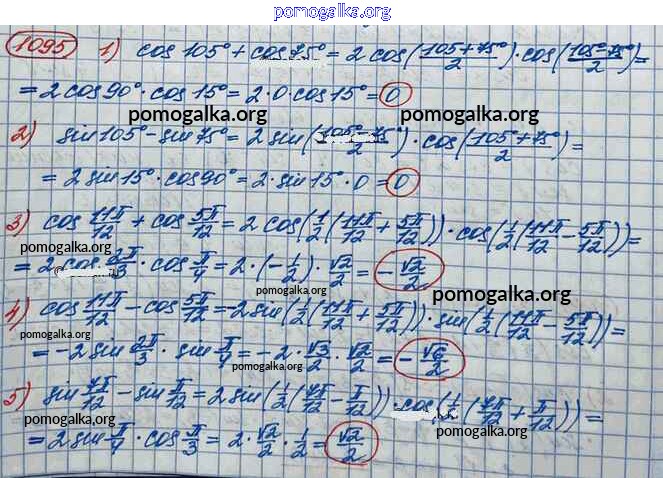 pomogalka.org
1095 1) cos 105° + cos 75° = 2 cos((105+75°)/2) · cos((105°-75°)/2) =
= 2 cos 90° · cos 15° = 2 · 0 · cos 15° = 0
pomogalka.org pomogalka.org
2) sin 105° - sin 75° = 2 sin((105°-75°)/2) · cos((105°+75°)/2) =
= 2 sin 15° · cos 90° = 2 · sin 15° · 0 = 0
3) cos 11π/12 + cos 5π/12 = 2 cos(1/2(11π/12 + 5π/12)) · cos(1/2(11π/12 - 5π/12)) =
pomogalka.org
= 2 cos 2π/3 · cos π/4 = 2 · (-1/2) · √2/2 = -√2/2
pomogalka.org pomogalka.org
4) cos 11π/12 - cos 5π/12 = -2 sin(1/2(11π/12 + 5π/12)) · sin(1/2(11π/12 - 5π/12)) =
pomogalka.org
= -2 sin 2π/3 · sin π/4 = -2 · √3/2 · √2/2 = -√6/2
5) sin 7π/12 - sin π/12 = 2 sin(1/2(7π/12 - π/12)) · cos(1/2(7π/12 + π/12)) =
pomogalka.org pomogalka.org
= 2 sin π/4 · cos π/3 = 2 · √2/2 · 1/2 = √2/2